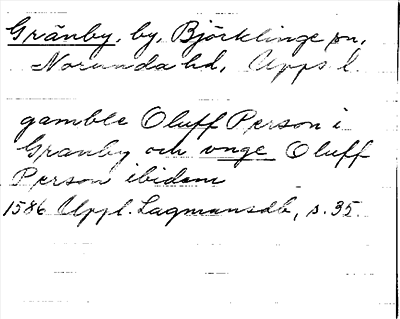 Gränby, by, Björklinge sn,
Norunda hd, Upps. l.
gamble Oluff Person i
Granby och vnge Oluff
Person ibidem
1586 Uppl. Lagmansdb, s. 35.